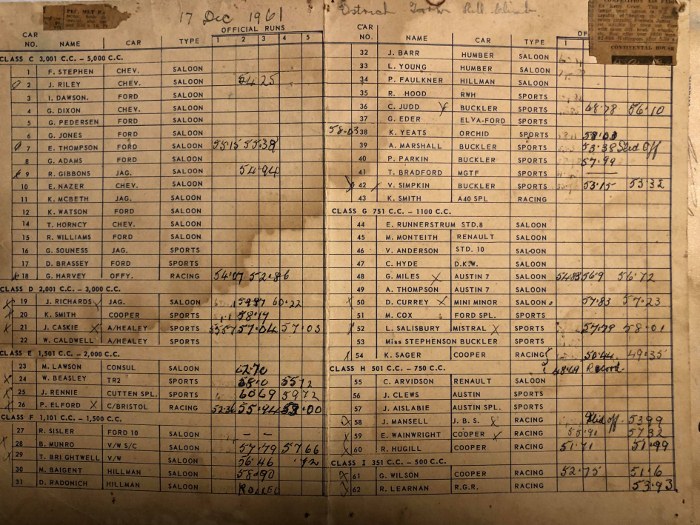 17 Dec 1961
OFFICIAL RUNS
CAR NO. NAME CAR TYPE 1 2 3 4 5
CLASS C 3,001 C.C. – 5,000 C.C.
1 F. STEPHEN CHEV. SALOON
2 J. RILEY CHEV. SALOON 54.25
3 I. DAWSON. FORD SALOON
4 G. DIXON CHEV. SALOON
5 G. PEDERSEN FORD SALOON
6 G. JONES FORD SALOON
7 E. THOMPSON FORD SALOON 55.15 55.38
8 G. ADAMS FORD SALOON
9 R. GIBBONS JAG. SALOON 54.94
10 E. NAZER CHEV. SALOON
11 K. McBETH JAG. SALOON
12 K. WATSON FORD SALOON
14 T. HORNCY CHEV. SALOON
15 R. WILLIAMS FORD SALOON
16 G. SOUNESS JAG. SPORTS
17 D. BRASSEY FORD SPORTS
18 G. HARVEY OFFY. RACING 54.07 52.86
CLASS D 2,001 C.C. – 3,000 C.C.
19 J. RICHARDS JAG. SALOON 60.22
20 K. SMITH COOPER SPORTS 58.19
21 J. CASKIE A/HEALEY SPORTS 57.04 57.03
22 W. CALDWELL A/HEALEY SPORTS
CLASS E 1,501 C.C. – 2,000 C.C.
23 M. LAWSON CONSUL SALOON 62.70
24 W. BEASLEY TR2 SPORTS 58.0 55.12
25 J. RENNIE CUTTEN SPL. SPORTS 60.69 59.72
26 P. ELFORD C/BRISTOL RACING 52.36 55.94 53.00
CLASS F 1,101 C.C. – 1,500 C.C.
27 R. SISLER FORD 10 SALOON – –
28 B. MUNRO V/W S/C SALOON 57.79 57.66
29 T. BRIGHTWELL V/W SALOON 56.46
30 M. BAIGENT HILLMAN SALOON 58.90
31 D. RADONICH HILLMAN SALOON ROLLED
CAR NO. NAME CAR TYPE
32 J. BARR HUMBER SALOON
33 L. YOUNG HUMBER SALOON
34 P. FAULKNER HILLMAN SALOON
35 R. HOOD RWH SPORTS
36 C. JUDD BUCKLER SPORTS 68.78 56.10
37 G. EDER ELVA-FORD SPORTS
58.03 38 K. YEATS ORCHID SPORTS 58.03
39 A. MARSHALL BUCKLER SPORTS 55.38 Slid Off
40 P. PARKIN BUCKLER SPORTS 57.99
41 T. BRADFORD MGTF SPORTS
42 V. SIMPKIN BUCKLER SPORTS 53.15 53.32
43 K. SMITH A40 SPL RACING
CLASS G 751 C.C. – 1100 C.C.
44 E. RUNNERSTRUM STD.8 SALOON
45 M. MONTEITH RENAULT SALOON
46 V. ANDERSON STD. 10 SALOON
47 C. HYDE D.K.W. SALOON
48 G. MILES AUSTIN 7 SALOON 56.72
49 A. THOMPSON AUSTIN 7 SALOON
50 D. CURREY MINI MINOR SALOON 57.83 57.23
51 M. COX FORD SPL. SPORTS
52 L. SALISBURY MISTRAL SPORTS 57.78 58.01
53 Miss STEPHENSON BUCKLER SPORTS
54 K. SAGER COOPER RACING 50.44 49.35
CLASS H 501 C.C. – 750 C.C. 48.49 Record
55 C. ARVIDSON RENAULT SALOON
56 J. CLEWS AUSTIN SPORTS
57 J. AISLABIE AUSTIN SPL. SPORTS
58 J. MANSELL J. B. S. RACING Slid off 53.99
59 E. WAINWRIGHT COOPER RACING 57.32
60 R. HUGILL COOPER RACING 51.71 51.99
CLASS I 351 C.C. – 500 C.C.
61 G. WILSON COOPER RACING 52.75 51.6
62 R. LEARNAN R.G.R. RACING 53.93